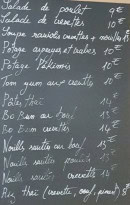 Salade de poulet 9€
Salade de crevettes 10€
Soupe raviolis crevettes + nouilles 13€
Potage asperges et crabes 10€
Potage Pékinois 10€
Tom yum aux crevettes 10€
Pates Thaï 14€
Bo Bun au boeuf 13€
Bo Bun crevettes 14€
Nouilles sautées au boeuf 13€
Nouilles sautées poulet 13€
Nouilles sautées crevette 14€
Riz thaï (crevette, oeuf, poulet) 8€